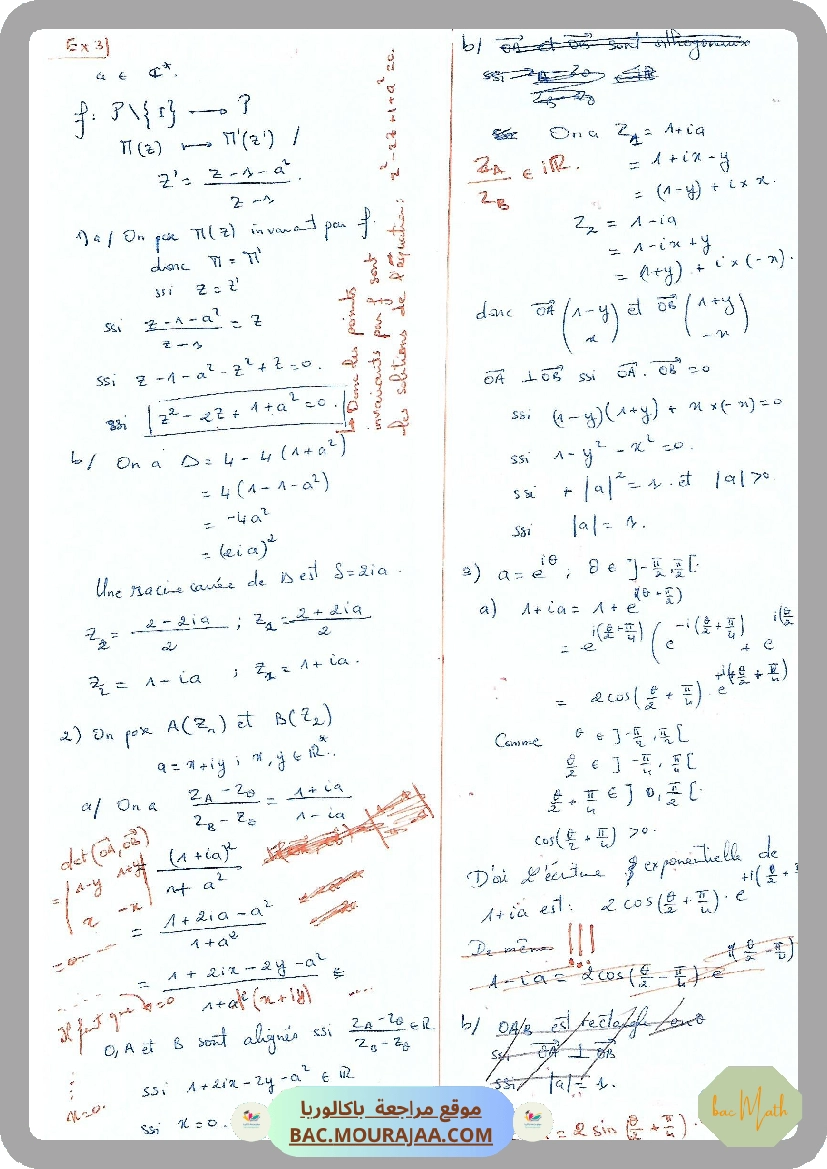 Ex 3)
a ∈ ℂ*.
f: P\{I} ⟶ P
M(z) ⟼ M'(z') /
z' = (z-1-a²)/(z-1).
1) a/ On pose M(z) invariant par f.
donc M = M'
ssi z = z'
ssi (z-1-a²)/(z-1) = z
ssi z-1-a²-z²+z = 0.
ssi z²-2z+1+a² = 0.
Donc les points
invariants par f sont
les solutions de l'équation: z²-2z+1+a²=0.
b/ On a Δ = 4-4(1+a²)
= 4(1-1-a²)
= -4a²
= (2ia)²
Une racine carrée de Δ est δ = 2ia.
z₂ = (2-2ia)/2 ; z₁ = (2+2ia)/2
z₂ = 1-ia ; z₁ = 1+ia.
2) On pose A(z₁) et B(z₂)
a = x+iy ; x, y ∈ ℝ*.
a/ On a (z_A - z_0)/(z_B - z_0) = (1+ia)/(1-ia)
= (1+ia)²/(1+a²)
= (1+2ia-a²)/(1+a²)
= (1+2ix-2y-a²)/(1+a²(x+iy))
det(OA, OB)
= |1-y 1+y|
|x -x|
=0
Il faut que x=0
O, A et B sont alignés ssi (z_A - z_0)/(z_B - z_0) ∈ ℝ.
ssi 1+2ix-2y-a² ∈ ℝ
ssi x = 0.
x=0.
b/ OA et OB sont orthogonaux
ssi (z_A - z_0)/(z_B - z_0) ∈ iℝ
On a z₁ = 1+ia
z_A/z_B ∈ iℝ.
= 1+ix-y
= (1-y) + i×x.
z₂ = 1-ia
= 1-ix+y
= (1+y) + i×(-x).
donc OA (1-y x) et OB (1+y -x)
OA ⊥ OB ssi OA . OB = 0
ssi (1-y)(1+y) + x×(-x) = 0
ssi 1-y²-x² = 0.
ssi + |a|² = 1. et |a| > 0
ssi |a| = 1.
3) a = e^{iθ} ; θ ∈ ]-π/2, π/2[.
a) 1+ia = 1+e^{i(θ+π/2)}
= e^{i(θ/2+π/4)} (e^{-i(θ/2+π/4)} + e^{i(θ/2
= 2cos(θ/2+π/4) . e^{+i(θ/2+π/4)}
Comme θ ∈ ]-π/2, π/2[
θ/2 ∈ ]-π/4, π/4[
θ/2+π/4 ∈ ]0, π/2[.
cos(θ/2+π/4) > 0.
D'où l'écriture exponentielle de
1+ia est: 2cos(θ/2+π/4) . e^{+i(θ/2+
De même !!!
1-ia = 2cos(θ/2-π/4) e^{i(θ/2-π/4)}
b/ OAB est rectangle en O
ssi OA ⊥ OB
ssi |a| = 1.
= 2 sin(θ/2+π/4).
موقع مراجعة باكالوريا
BAC.MOURAJAA.COM
bac Math